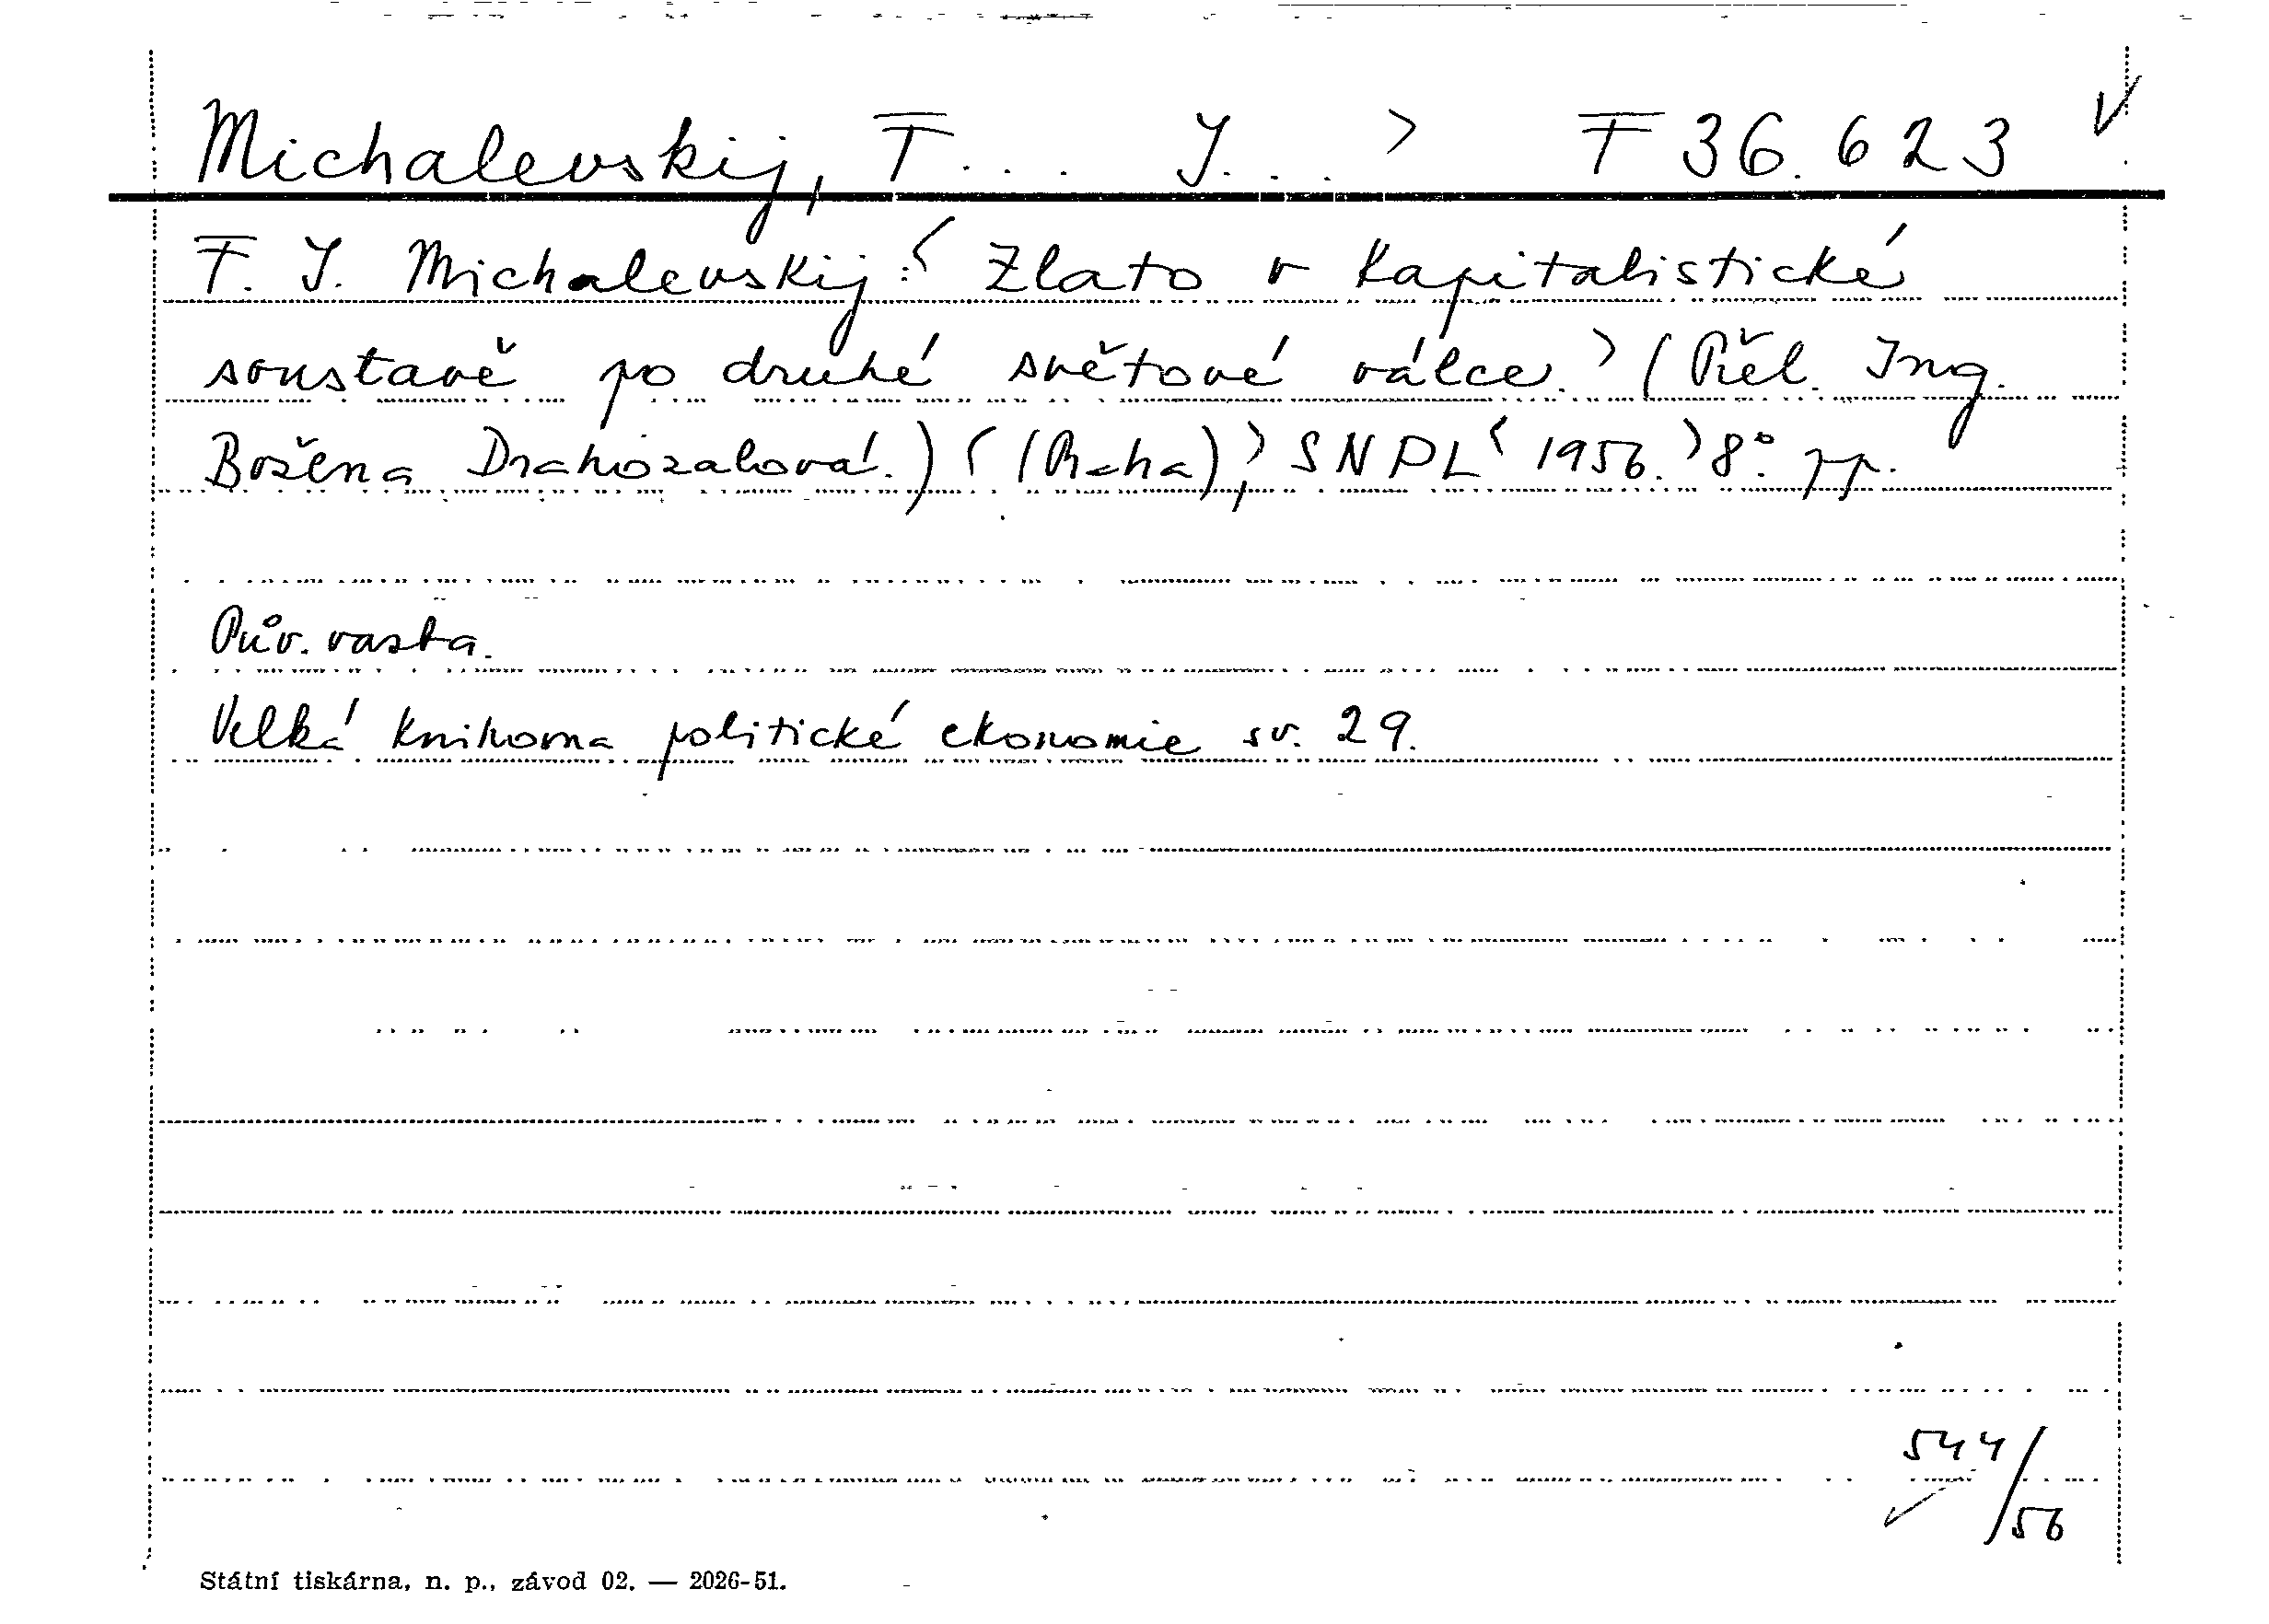 Michalevskij, F... J... > F 36.623 ✓
F. J. Michalevskij:< Zlato v kapitalistické
soustavě po druhé světové válce.> (Přel. Ing.
Božena Drahozalová.) < (Praha),> SNPL < 1956.> 8°. pp.
Pův. vazba.
Velká knihovna politické ekonomie sv. 29.
544/56
Státní tiskárna, n. p., závod 02. — 2026-51.